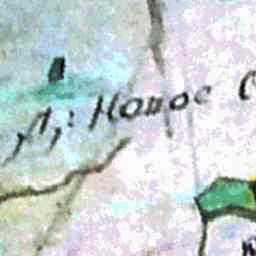 Д: Новое С